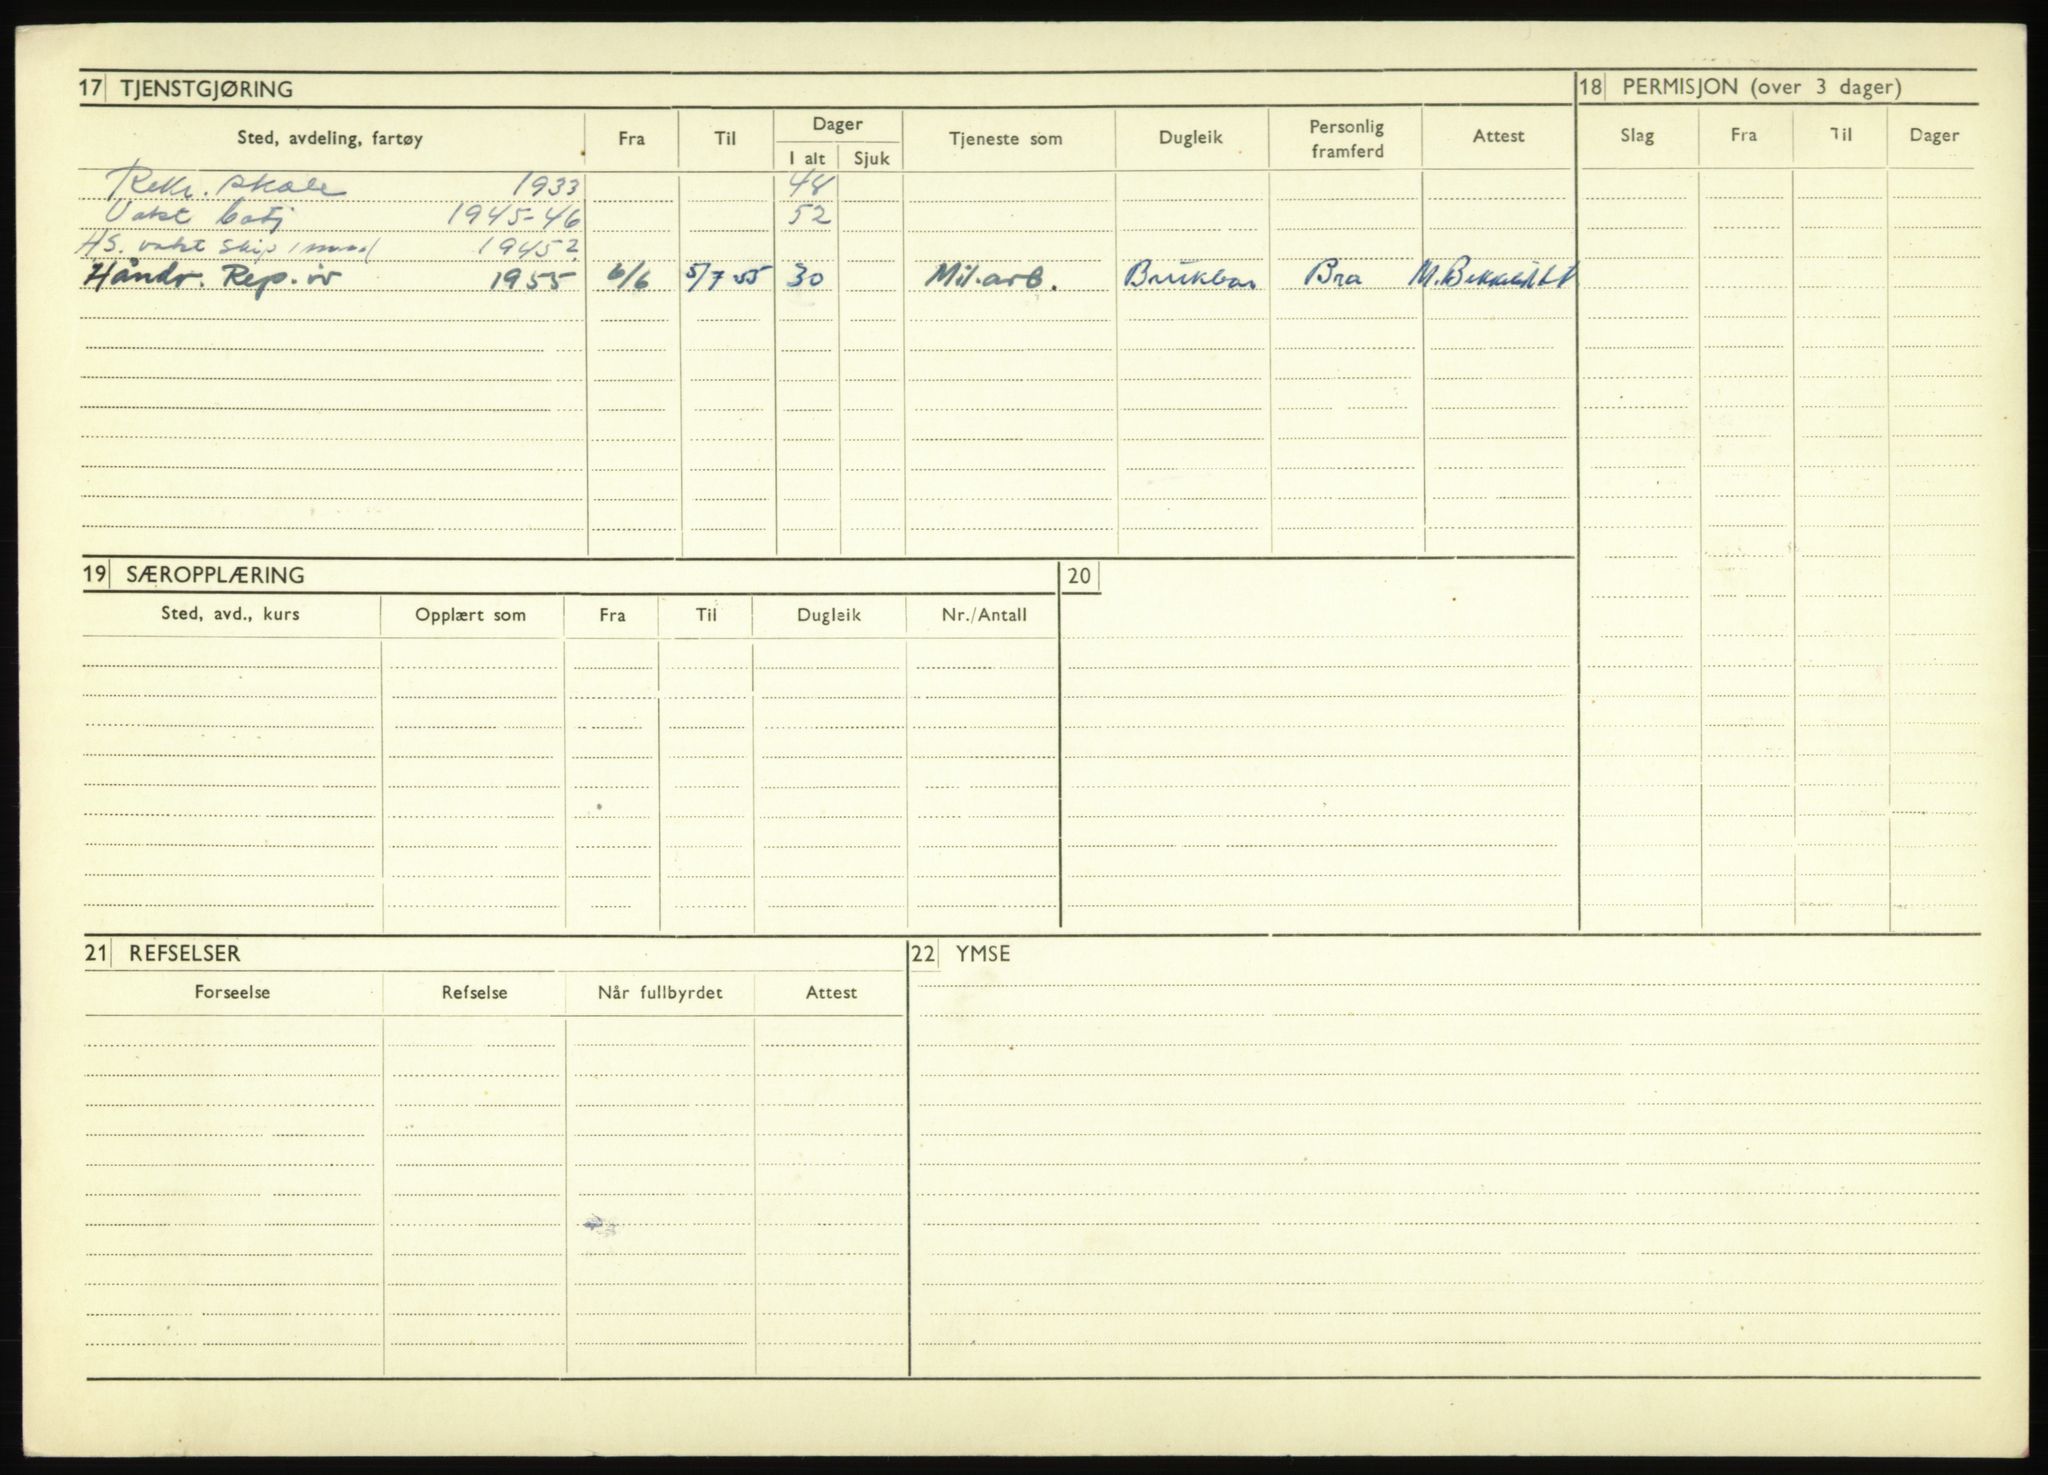 17 TJENSTGJØRING
Sted, avdeling, fartøy Fra Til Dager Tjeneste som Dugleik Personlig framferd Attest
I alt Sjuk
Rekr. skole 1933 48
Vakt batj 1945-46 52
HS. vakt skip 1945?
Håndv. Rep. øv 1955 6/6 5/7 55 30 Mil.arb. Brukbar Bra
18 PERMISJON (over 3 dager)
Slag Fra Til Dager
19 SÆROPPLÆRING
Sted, avd., kurs Opplært som Fra Til Dugleik Nr./Antall
20
21 REFSELSER
Forseelse Refselse Når fullbyrdet Attest
22 YMSE